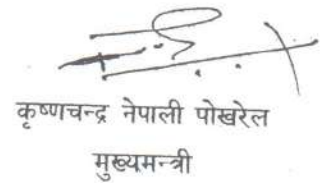 कृष्णचन्द्र नेपाली पोखरेल
मुख्यमन्त्री